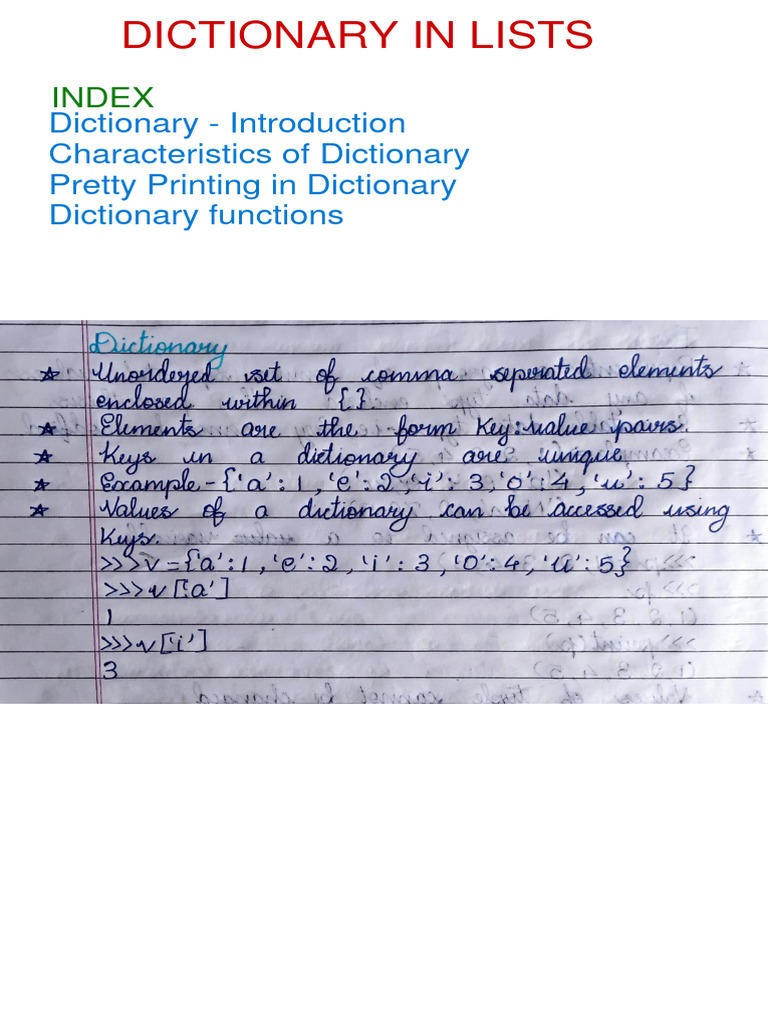 DICTIONARY IN LISTS
INDEX
Dictionary - Introduction
Characteristics of Dictionary
Pretty Printing in Dictionary
Dictionary functions
Dictionary
☆ Unordered set of comma seperated elements
enclosed within { }.
☆ Elements are the form Key:value pairs.
☆ Keys in a dictionary are unique
☆ Example-{'a': 1, 'e': 2, 'i': 3, 'o': 4, 'u': 5}
☆ Values of a dictionary can be accessed using
Keys.
>>>v={'a':1, 'e':2, 'i': 3, 'o': 4, 'u': 5}
>>>v['a']
1
>>>v['i']
3